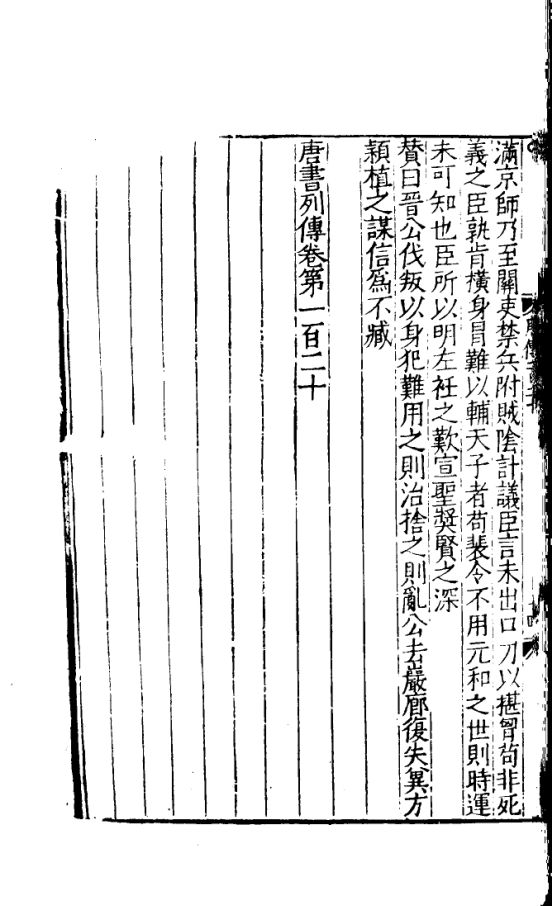 滿京師乃至關吏禁兵附賊陰計議臣言未出口刀以揕胷苟非死
義之臣孰肯橫身冒難以輔天子者苟裴令不用元和之世則時運
未可知也臣所以明左衽之歎宣聖奬賢之深
贊曰晉公伐叛以身犯難用之則治捨之則亂公去巖廊復失異方
穎植之謀信爲不臧
唐書列傳卷第一百二十